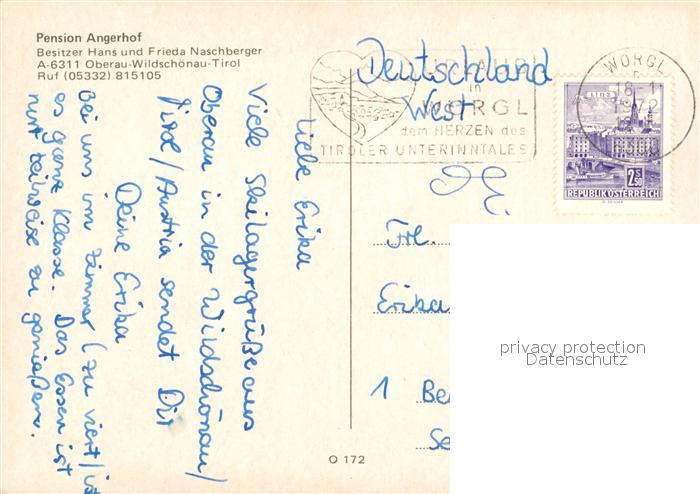 Pension Angerhof
Besitzer Hans und Frieda Naschberger
A-6311 Oberau-Wildschönau-Tirol
Ruf (05332) 815105
Liebe Erika
Viele Skilagergrüße aus
Oberau in der Wildschönau/
Tirol/Austria sendet Dir
Deine Erika
Bei uns im Zimmer (zu viert) is
es ganz Klasse. Das Essen ist
nur teilweise zu genießen.
Deutschland
West
in
WÖRGL
dem HERZEN des
TIROLER UNTERINNTALES
WÖRGL
18-1
1972
LINZ
2.50
S
REPUBLIK ÖSTERREICH
Frl.
Erika
1 Be
Se
privacy protection
Datenschutz
O 172